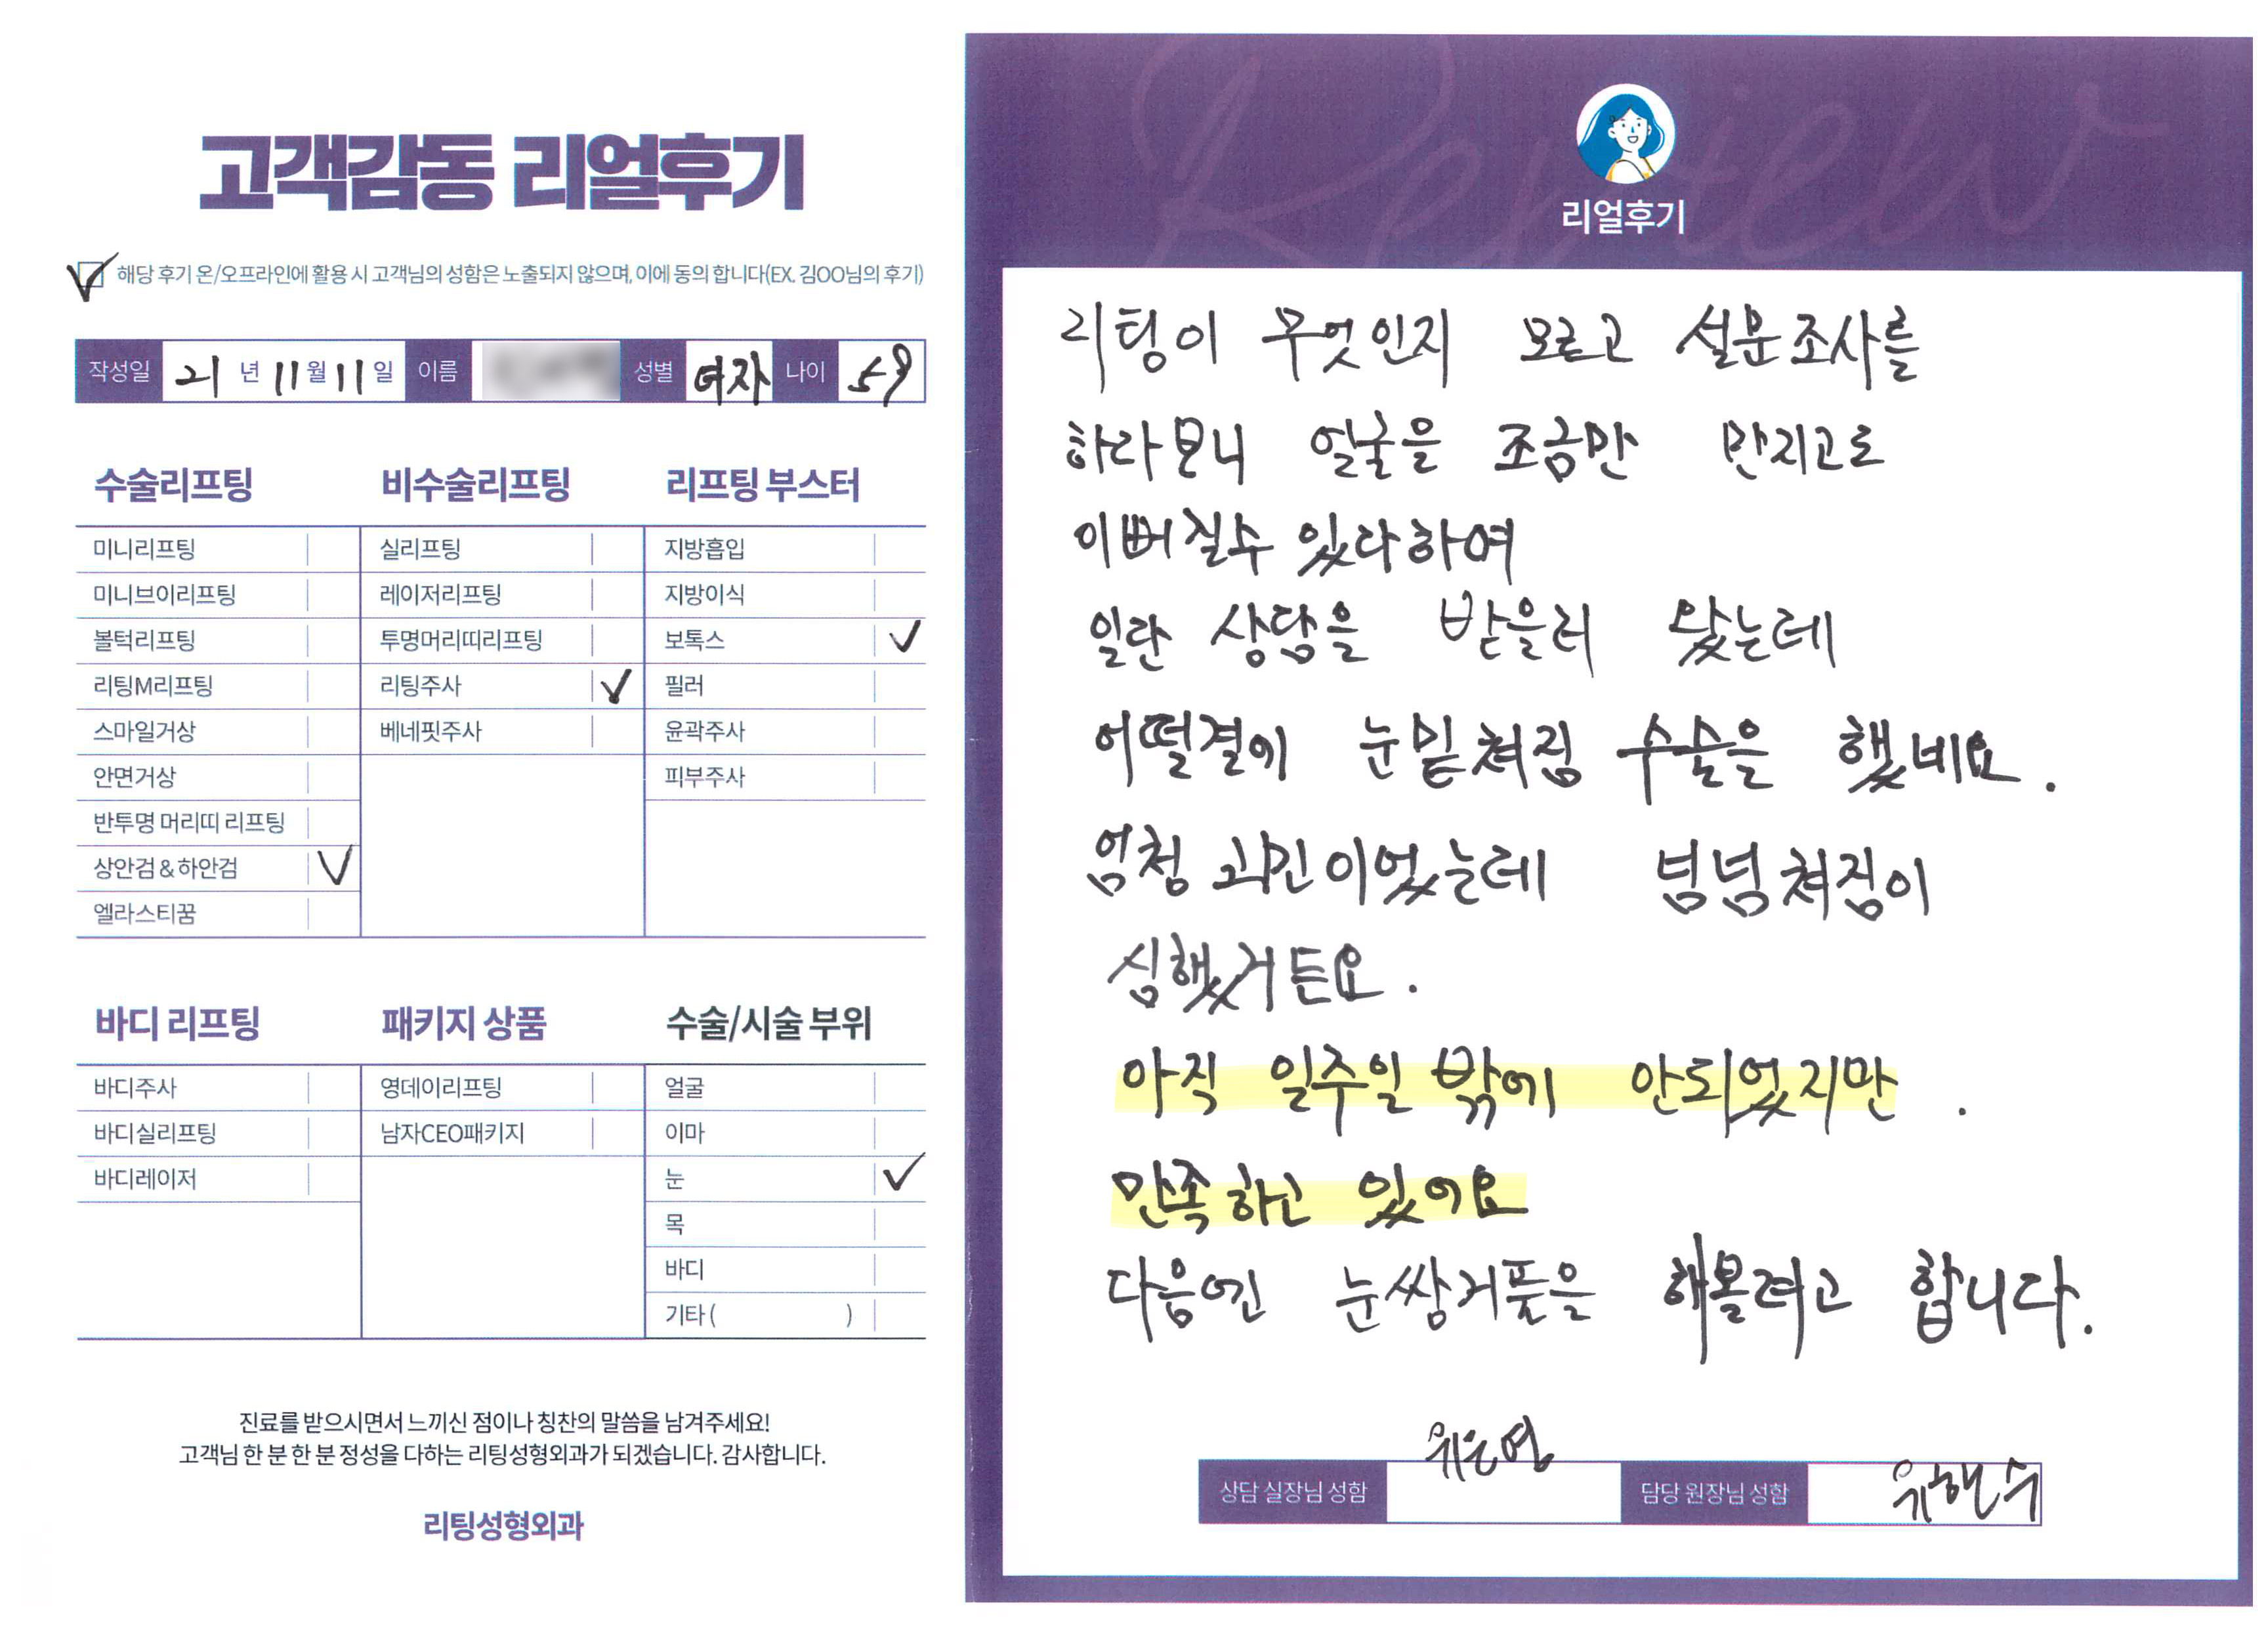 고객감동 리얼후기
해당 후기 온/오프라인에 활용 시 고객님의 성함은 노출되지 않으며, 이에 동의 합니다(EX. 김OO님의 후기)
작성일 21 년 11 월 11 일 이름 성별 여자 나이 59
수술리프팅
미니리프팅
미니브이리프팅
볼턱리프팅
리팅M리프팅
스마일거상
안면거상
반투명 머리띠 리프팅
상안검&하안검 ✓
엘라스티꿈
비수술리프팅
실리프팅
레이저리프팅
투명머리띠리프팅
리팅주사 ✓
베네핏주사
리프팅 부스터
지방흡입
지방이식
보톡스 ✓
필러
윤곽주사
피부주사
바디 리프팅
바디주사
바디실리프팅
바디레이저
패키지 상품
영데이리프팅
남자CEO패키지
수술/시술 부위
얼굴
이마
눈 ✓
목
바디
기타 ( )
진료를 받으시면서 느끼신 점이나 칭찬의 말씀을 남겨주세요!
고객님 한 분 한 분 정성을 다하는 리팅성형외과가 되겠습니다. 감사합니다.
리팅성형외과
Review
리얼후기
리팅이 무엇인지 모르고 설문조사를
하라보니 얼굴을 조금만 만지고도
이뻐질수 있다하여
일단 상담을 받을러 왔는데
어떨결에 눈밑쳐짐 수술을 했네요.
엄청 고민이었는데 넘넘쳐짐이
심했거든요.
아직 일주일 밖에 안되었지만.
만족하고 있어요
다음엔 눈쌍거풀을 해볼려고 합니다.
상담 실장님 성함 위은영 담당 원장님 성함